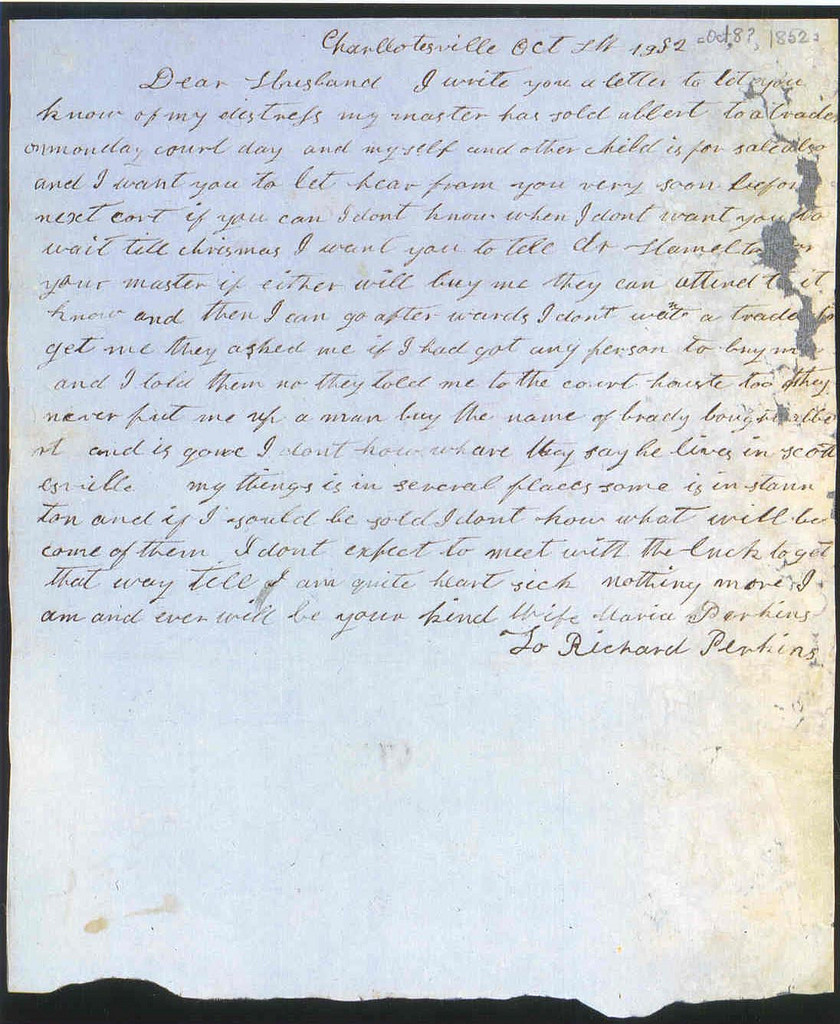 Charllotesville Oct 8th 1982 =Oct, 8?, 1852=
Dear Husband I write you a letter to let you
know of my distress my master has sold albert to a trader
on monday court day and myself and other child is for sale also
and I want you to let hear from you very soon before
next cort if you can I dont know when I dont want you to
wait till chrismas I want you to tell dr Hamelton or
your master if either will buy me they can attend to it
know and then I can go after wards I dont want a trader to
get me they asked me if I had got any person to buy me
and I told them no they told me to the court houste too they
never put me up a man buy the name of brady bought albe
rt and is gone I dont know whare they say he lives in scott
esville my things is in several places some is in staun
ton and if I sould be sold I dont know what will be
come of them I dont expect to meet with the luck to get
that way till I am quite heart sick nothing more I
am and ever will be your kind Wife Maria Perkins
To Richard Perkins